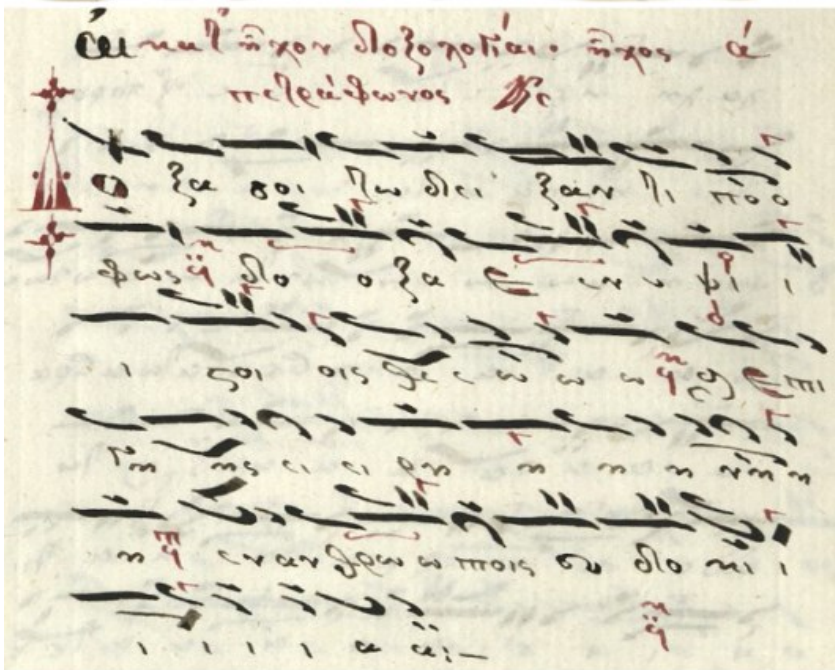 αἱ κατ ἦχον δοξολογίαι· ἦχος ά
τετράφωνος
Δ ο ξα σοι τω δει ξαν τι το ο
φως δο ο ξα ε εν υ ψι ι
ι στοι οις θε ε ω ω ω ϗ ε πι
γη ης ει ει ρη η η η νη η
η εν αν θρω ω ποις ευ δο κι ι
ι ι ι ι α α:—